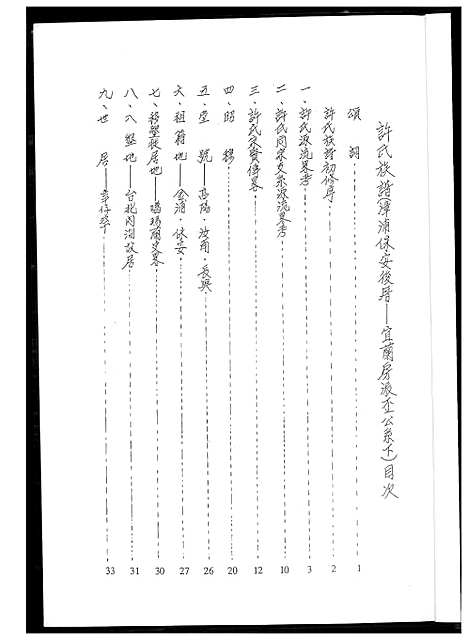 許氏族譜漳浦保安後厝——宜蘭房派丕公系下)目次
頌詞 1
許氏族譜初修序 2
一、許氏源流畧考 3
二、許氏同宗支系源流畧考 10
三、許氏宗賢傳畧 12
四、昭穆 20
五、堂號——高陽·汝南·長興 26
六、祖籍地——金浦·保安 27
七、移墾徙居地——噶瑪蘭史畧 30
八、入墾地——台北內湖故居 31
九、世居 33